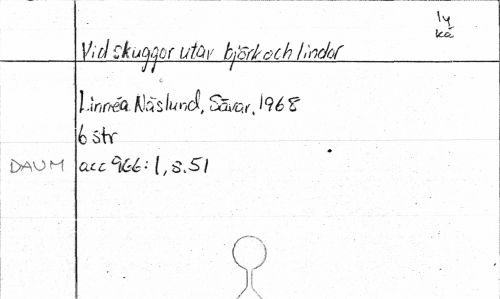 ly
kä
Vid skuggor utav björk och lindar
Linnéa Näslund, Sävar, 1968
6 str
DAUM acc 966:1, s.51